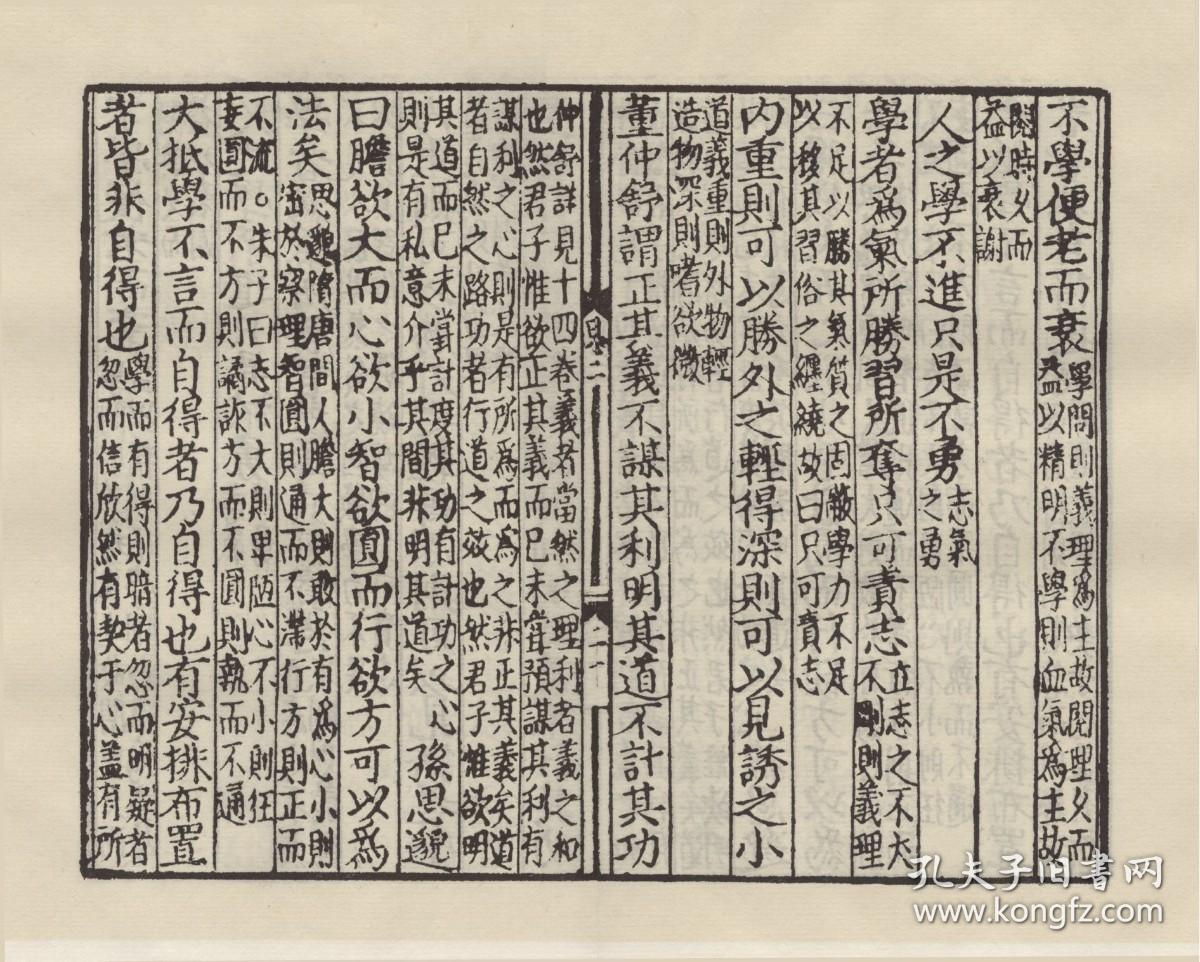 不學便老而衰學問則義理爲主故閱理久而
益以精明不學則血氣爲主故
閱時久而
益以衰謝
人之學不進只是不勇志氣
之勇
學者爲氣所勝習所奪只可責志立志之不大
不剛則義理
不足以勝其氣質之固蔽學力不足
以移其習俗之纏繞故曰只可責志
內重則可以勝外之輕得深則可以見誘之小
道義重則外物輕
造物深則嗜欲微
董仲舒謂正其義不謀其利明其道不計其功
二十
仲舒詳見十四卷義者當然之理利者義之和
也然君子惟欲正其義而已未嘗預謀其利有
謀利之心則是有所爲而爲之非正其義矣道
者自然之路功者行道之效也然君子惟欲明
其道而已未嘗計度其功有計功之心
則是有私意介乎其間非明其道矣
孫思邈
曰膽欲大而心欲小智欲圓而行欲方可以爲
法矣思邈隋唐間人膽大則敢於有爲心小則
密於察理智圓則通而不滯行方則正而
不流○朱子曰志不大則卑陋心不小則狂
妄圓而不方則譎詐方而不圓則執而不通
大抵學不言而自得者乃自得也有安排布置
者皆非自得也學而有得則暗者忽而明疑者
忽而信欣然有契于心蓋有所
孔夫子旧書网
www.kongfz.com